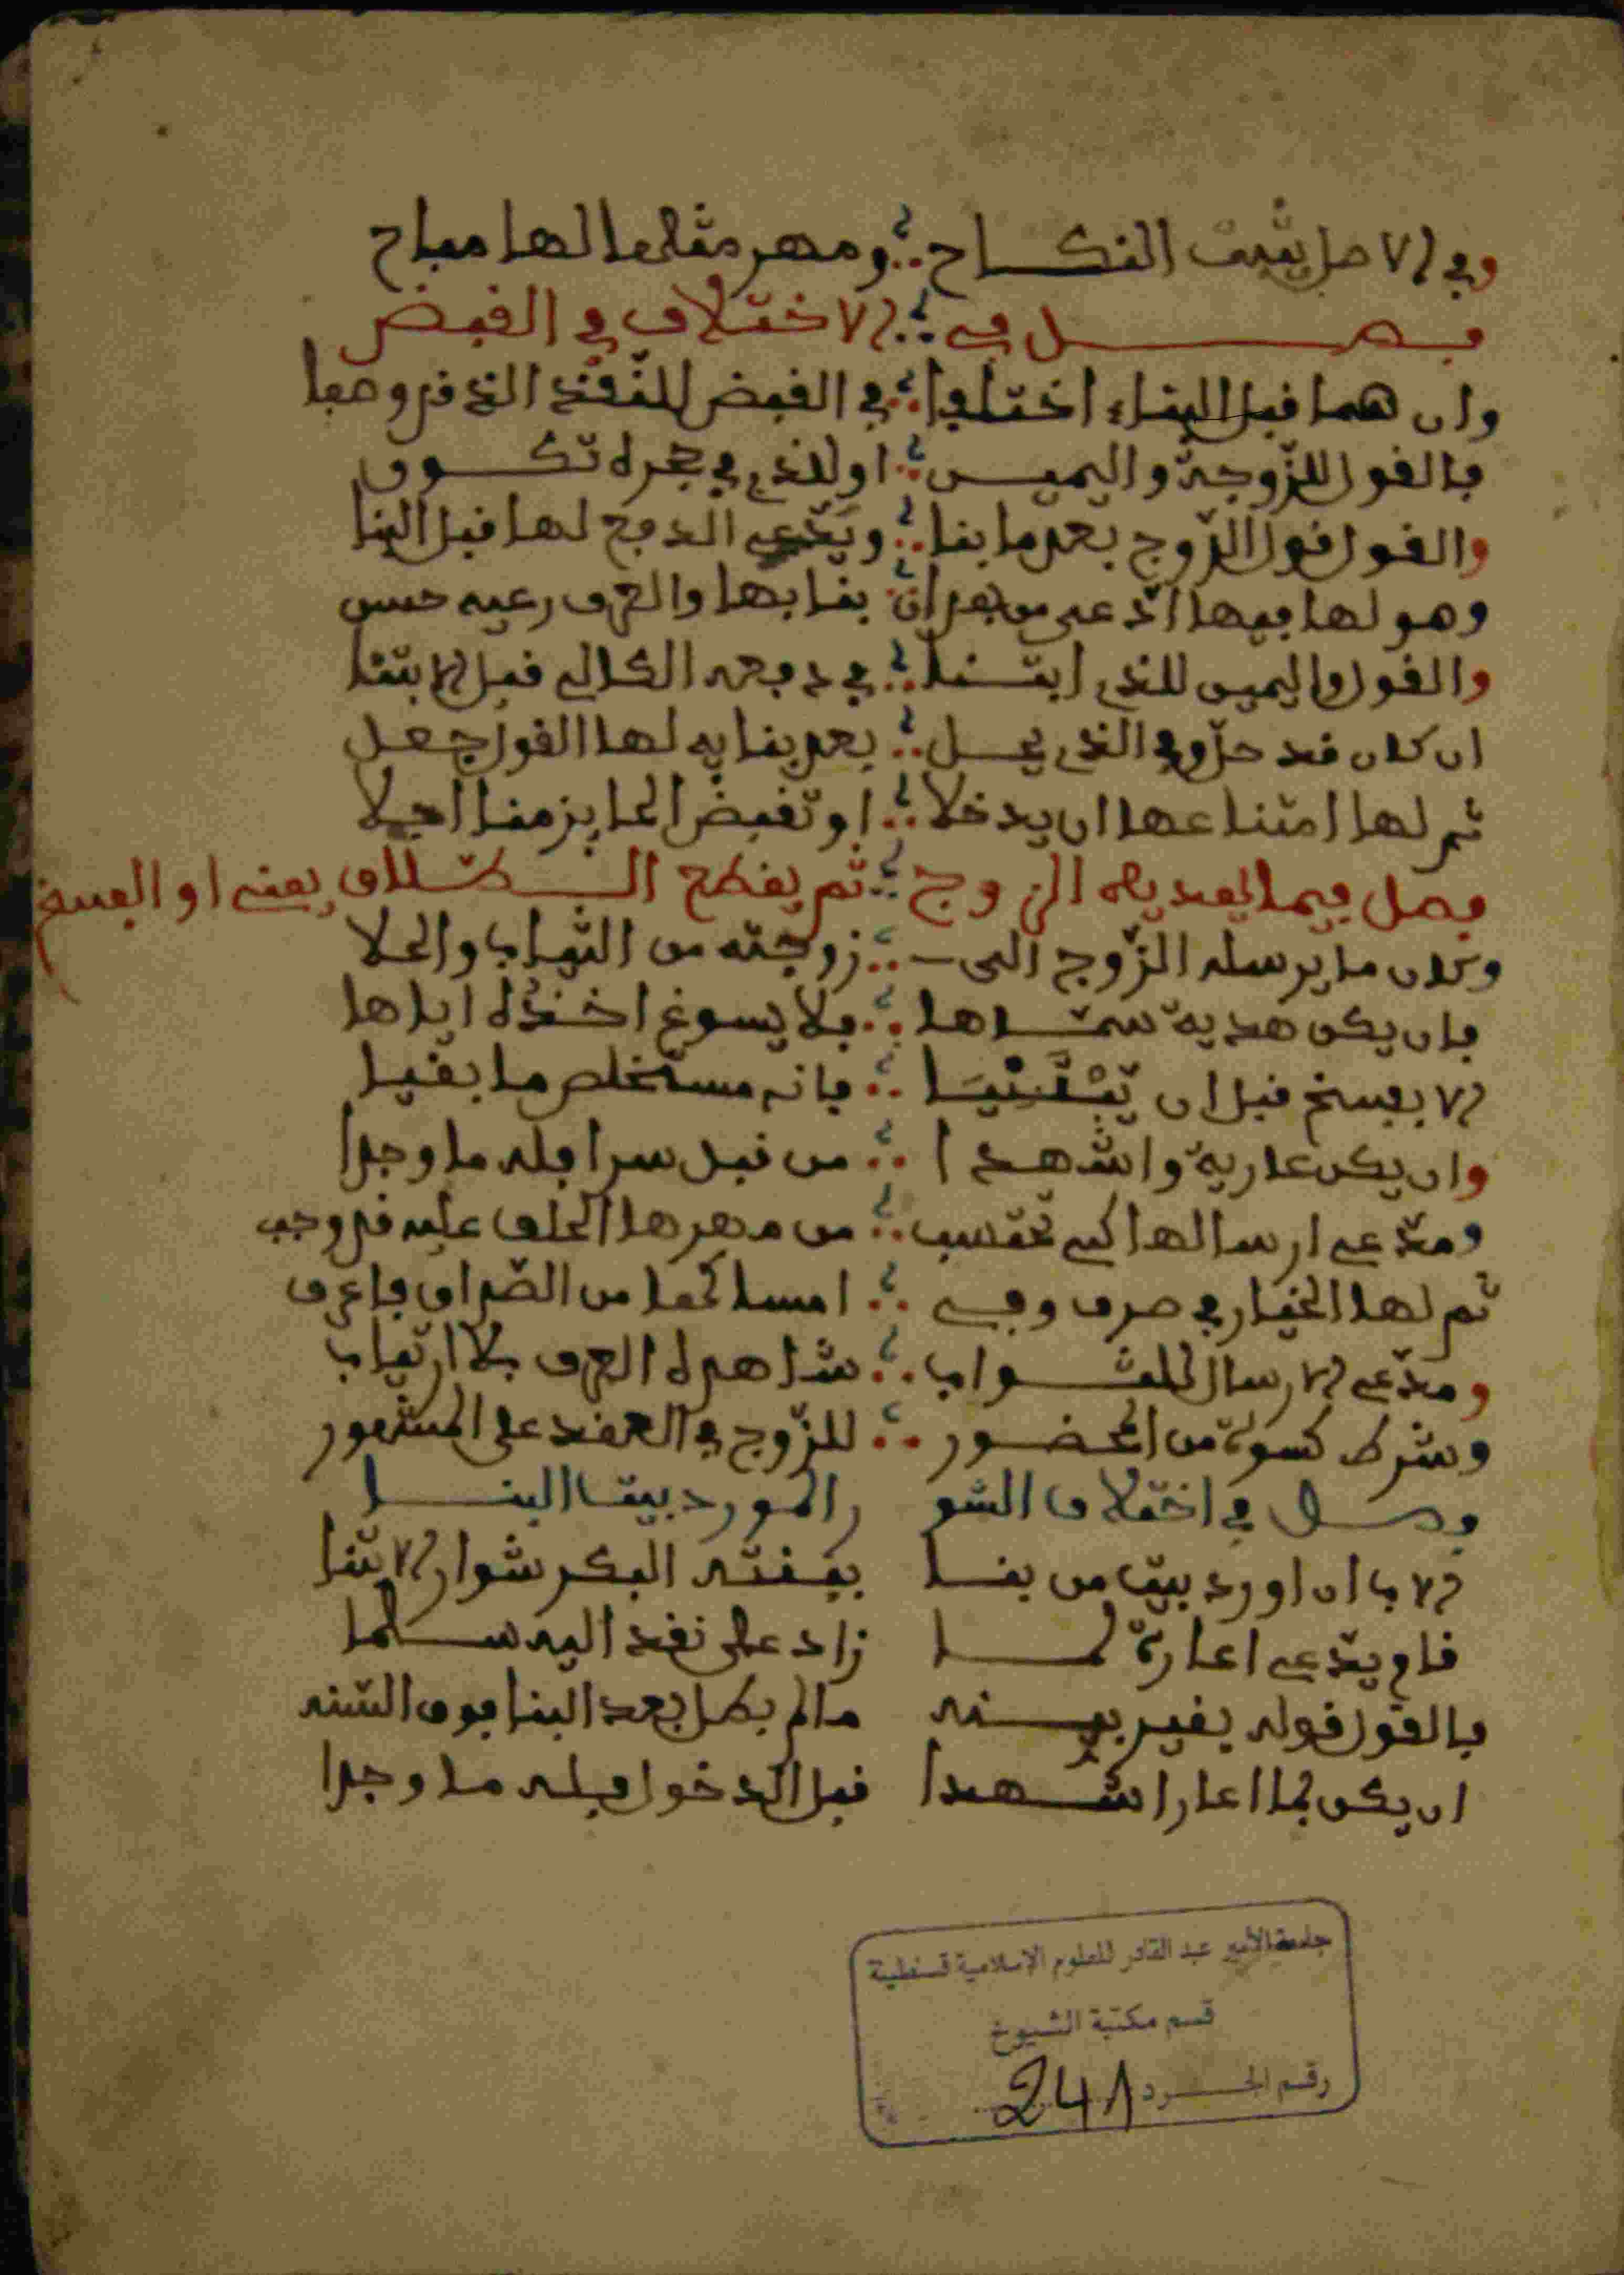 وفي الاصل يثبت النكاح ∴ ومهر مثلها لها مباح
فصل في ∴ الاختلاف في القبض
وان هما قبل البناء اختلفا ∴ في القبض للنقد الذي قد وصفا
فالقول للزوجة واليمين ∴ او للذي في حجره تكون
والقول قول الزوج بعد ما بنا ∴ ويدعي الدفع لها قبل البنا
وهو لها فيما ادعى من بعد ان ∴ بنا بها والعرف رعيه حسن
والقول واليمين للذي ابتنا ∴ في دفعه الكالي قبل الابتنا
ان كان قد حل وفي الذي يحل ∴ بعد بنايه لها القول جعل
ثم لها امتناعها ان يدخلا ∴ او تقبض الحايز منا اجلا
فصل فيما يهديه الزوج ∴ ثم يقطع الطلاق يعني او الفسخ
وكان ما يرسله الزوج الى ∴ زوجته من الثياب والحلا
فان يكن هدية سماها ∴ فلا يسوغ اخذه اياها
الا بفسخ قبل ان يبتنيا ∴ فانه مستخلص ما بقيا
وان يكن عارية واشهدا ∴ من قبل سرا فله ما وجدا
ومدعي ارسالها كي تحتسب ∴ من مهرها الحلف عليه قد وجب
ثم لها الخيار في صرف وفي ∴ امساكها من الصداق فاعرف
ومدعي الارسال للثواب ∴ شاهده العرف بلا ارتياب
وشرط كسوة من المحضور ∴ للزوج في العقد على المشهور
فصل في اختلاف الشو ار المورد بيت البنا
الاب ان اورد بيت من بنا بيفنته البكر شوار الابتنا
قام يدعي اعارة لما زاد على نقد اليه سلما
فالقول قوله بغير بينه ما لم يطل بعد البنا فوق السنه
ان يكن بما اعار اشهدا قبل الدخول فله ما وجدا
جامعة الأمير عبد القادر للعلوم الإسلامية قسنطينة
قسم مكتبة الشيوخ
رقم الجرد 241